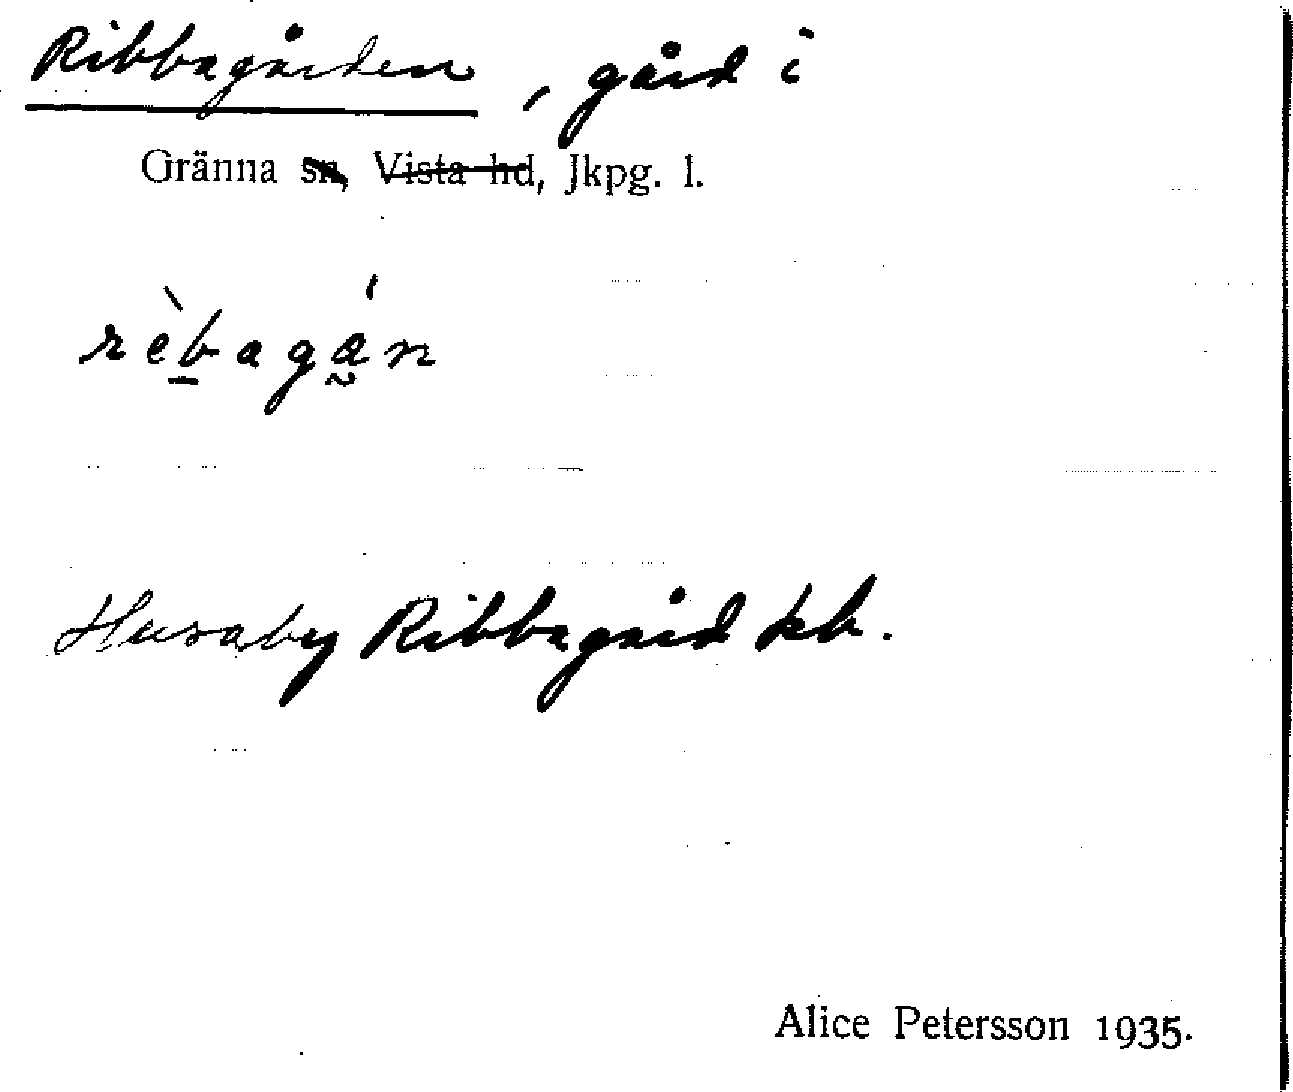 Ribbagården, gård i
Gränna sn, Vista hd, Jkpg. l.
rèbagán
Husaby Ribbagård kb.
Alice Petersson 1935.